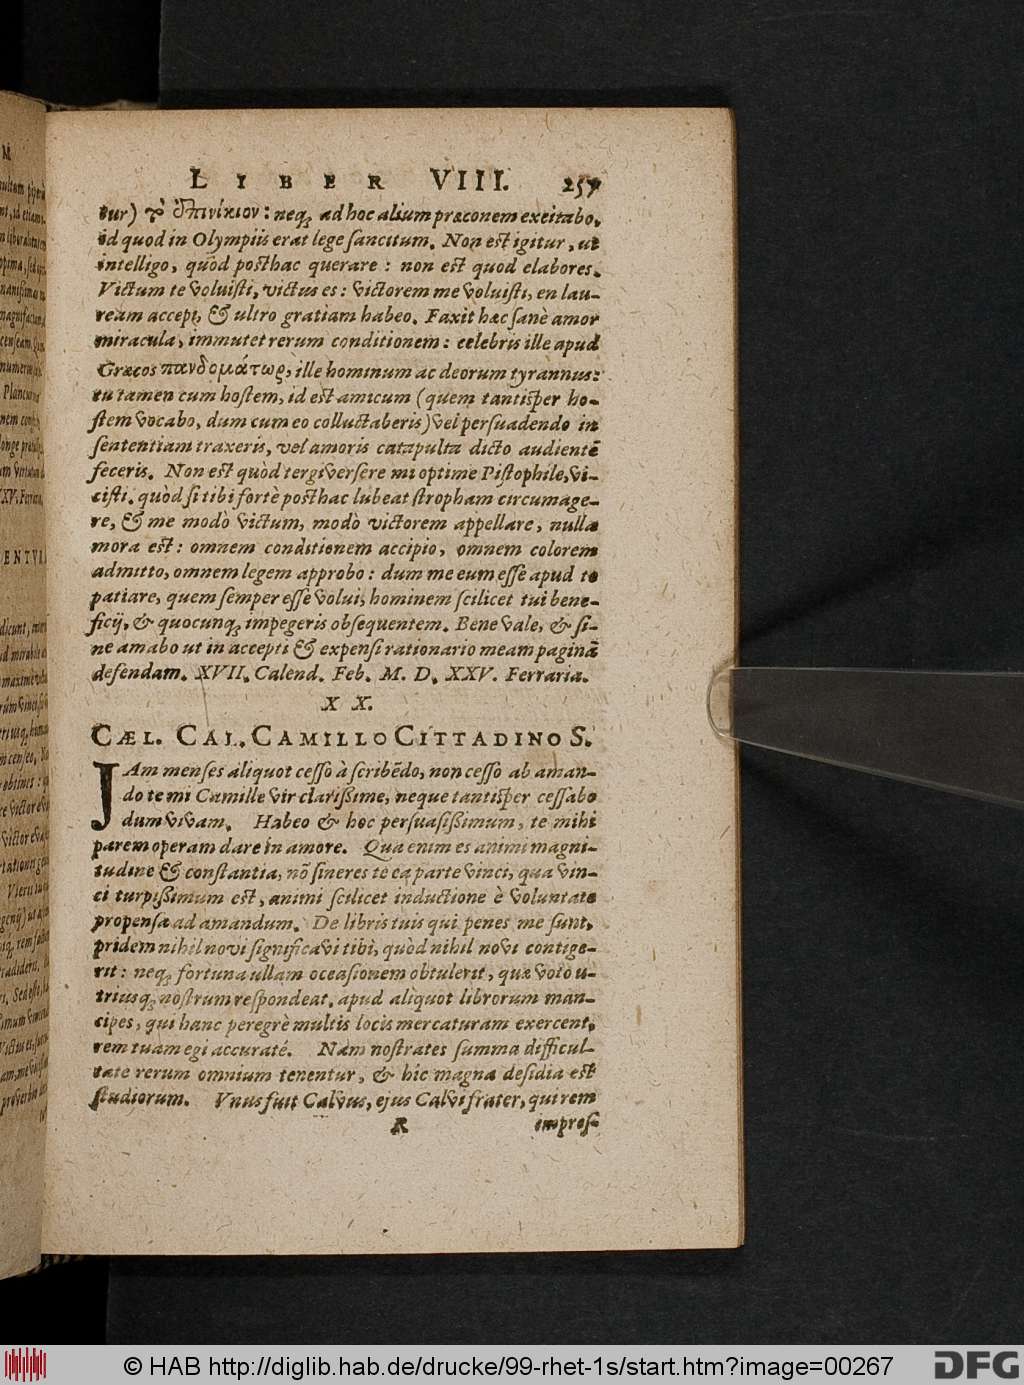 LIBER VIII. 257
tur) τὸ ἐπινίκιον: neq; ad hoc alium præconem excitabo,
id quod in Olympiis erat lege sancitum. Non est igitur, ut
intelligo, quòd posthac querare: non est quod elabores.
Victum te voluisti, victus es: victorem me voluisti, en lau-
ream accepi, & ultro gratiam habeo. Faxit hæc sanè amor
miracula, immutet rerum conditionem: celebris ille apud
Græcos πανδομάτωρ, ille hominum ac deorum tyrannus:
tu tamen cum hostem, id est amicum (quem tantisper ho-
stem vocabo, dum cum eo colluctaberis) vel persuadendo in
sententiam traxeris, vel amoris catapulta dicto audientē
feceris. Non est quòd tergiversere mi optime Pistophile, vi-
cisti. quòd si tibi fortè posthac lubeat stropham circumage-
re, & me modò victum, modò victorem appellare, nulla
mora est: omnem conditionem accipio, omnem colorem
admitto, omnem legem approbo: dum me eum esse apud te
patiare, quem semper esse volui, hominem scilicet tui bene-
ficij, & quocunq; impegeris obsequentem. Bene vale, & si-
ne amabo ut in accepti & expensi rationario meam paginā
defendam. XVII. Calend. Feb. M. D. XXV. Ferraria.
XX.
CÆL. CAL. CAMILLO CITTADINO S.
JAm menses aliquot cesso à scribēdo, non cesso ab aman-
do te mi Camille vir clarißime, neque tantisper cessabo
dum vivam. Habeo & hoc persuasißimum, te mihi
parem operam dare in amore. Qua enim es animi magni-
tudine & constantia, nō sineres te ea parte vinci, qua vin-
ci turpißimum est, animi scilicet inductione è voluntate
propensa ad amandum. De libris tuis qui penes me sunt,
pridem nihil novi significavi tibi, quòd nihil novi contige-
rit: neq; fortuna ullam occasionem obtulerit, quæ voto u-
triusq; nostrum respondeat. apud aliquot librorum man-
cipes, qui hanc peregrè multis locis mercaturam exercent,
rem tuam egi accuraté. Nam nostrates summa difficul-
tate rerum omnium tenentur, & hic magna desidia est
studiorum. Vnus fuit Calvus, ejus Calvi frater, qui rem
R impres-
© HAB http://diglib.hab.de/drucke/99-rhet-1s/start.htm?image=00267 DFG